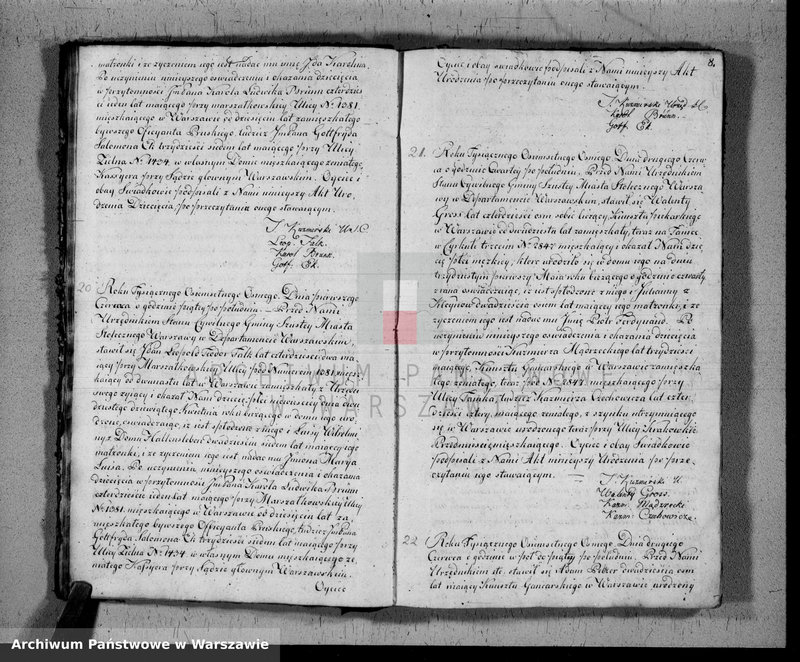 matronki i ze życzeniem jego jest nadać mu imię Jda Karolina.
Po uczynieniu ninieyszego oświadczenia i okazania dziecięcia
w przytomności JmPana Karola Ludwika Brünn czterdzieści
ieden lat maiącego przy marszałkowskiey Ulicy Nr 1081
mięszkaiącego w Warszawie od dziesięciu lat zamięszkałego
bywszego Oficyanta Pruskiego, tudzież JmPana Gottfryda
Salomona Ek trzydzieści siedem lat maiącego przy Ulicy
Zielna Nr 1434. w własnym Domu mięszkaiącego zeniałego
Kassyera przy Sądzie głownym Warszawskim. Oyciec i
obay Swiadkowie podpisali z Nami ninieyszy Akt Uro-
dzenia Dziecięcia, po przeczytaniu onego stawaiącym.
Leop. Falk.
Karol Brünn.
Gotf. Ek.
20 Roku Tysiącznego Osmsetnego Osmego. Dnia pierwszego
Czerwca o godzinie piątey po południu. – Przed Nami
Urzędnikiem Stanu Cywilnego Gminy Szustey Miasta
Stołecznego Warszawy w Departamencie Warszawskim,
stawił się JPan Leopold Teodor Falk lat czterdzieści dwa ma-
iący przy Marszałkowskiey Ulicy pod Numerem 1081. mięsz-
kaiący od dwunastu lat w Warszawie zamięszkały z Urzędu
swego żyiący i okazał Nam dziecię płci niewieściey dnia dwu-
dziestego dziewiątego Kwietnia roku bieżącego w domu iego uro-
dzone, oświadczaiąc, iż iest spłodzone z niego i Luisy Wilhelmi-
ny z Domu Hallensleben dwadzieścia siedem lat maiącey iego
małzonki, i że życzeniem iego iest nadać mu Jmiona Marya
Luisa. Po uczynieniu ninieyszego oświadczenia i okazania
dziecięcia w przytomności JmPana Karola Ludwika Brünn
czterdzieści ieden lat maiącego przy Marszałkowskiey Ulicy
Nr 1081. mięszkaiącego w Warszawie od dziesięciu lat za-
mięszkałego bywszego Officyanta Pruskiego, tudzież JmPana
Gottfryda Salomona Ek trzydzieści siedem lat maiącego przy
Ulicy Zielna Nr 1434 w własnym Domu mięszkaiącego ze-
niałego Kassyera przy Sądzie głownym Warszawskim.
Oyciec
8.
Oyciec i obay swiadkowie podpisali z Nami ninieyszy Akt
Urodzenia po przeczytaniu onego stawaiącym.
Karol Brünn.
Gotf. Ek.
21. Roku Tysiącznego Osmsetnego Osmego. Dnia drugiego Czerw-
ca o godzinie Czwartey po południu. Przed Nami Urzędnikiem
Stanu Cywilnego Gminy Szustey Miasta Stołecznego Warsza-
wy w Departamencie Warszawskim, stawił się Walenty
Gross lat czterdzieści osm sobie liczący, Kunsztu piekarskiego
w Warszawie od dwudziestu lat zamięszkały, teraz na Tamce
w Cyrkule trzecim Nr 2847 mięszkaiący i okazał Nam dzie-
cię płci męzkiey, ktore urodziło się w domu iego na dniu
trzydziestym pierwszy Maia roku bieżącego o godzinie czwartey
z rana oświadczaiąc, iż iest spłodzone z niego i Julianny z
dwadzieścia osm lat maiącey iego matronki, i ze
zyczeniem iego iest nadać mu Jmię Piotr Ferdynand. Po
uczynieniu ninieyszego oświadczenia i okazania dziecięcia
w przytomności Kazimierza Mądrzeckiego lat trzydzieści
maiącego, Kunsztu Garncarskiego w Warszawie zamięszka-
łego zeniatego, teraz pod Nr 2843. mięszkaiącego przy
Ulicy Tamka, tudzież Kazimierza Czechowicza lat czter-
dzieści cztery maiącego zeniatego, z szynku utrzymuiącego
się w Warszawie urodzonego teraz przy Ulicy Krakowskie
Przedmieście mięszkaiącego. Oyciec i obay Swiadkowie
podpisali z Nami Akt ninieyszy Urodzenia po prze-
czytaniu iego stawaiącym.
Walenty Gross.
Kazm: Mądrzecki
22 Roku Tysiącznego Osmsetnego Osmego. Dnia drugiego
Czerwca o godzinie w poł do piątey po południu. Przed Nami
Urzędnikiem etc. stawił się Adam Pelcer dwadzieścia osm
lat maiący Kunsztu Garncarskiego w Warszawie urodzony
ARCHIWUM PAŃSTWOWE W WARSZAWIE
Archiwum Państwowe w Warszawie